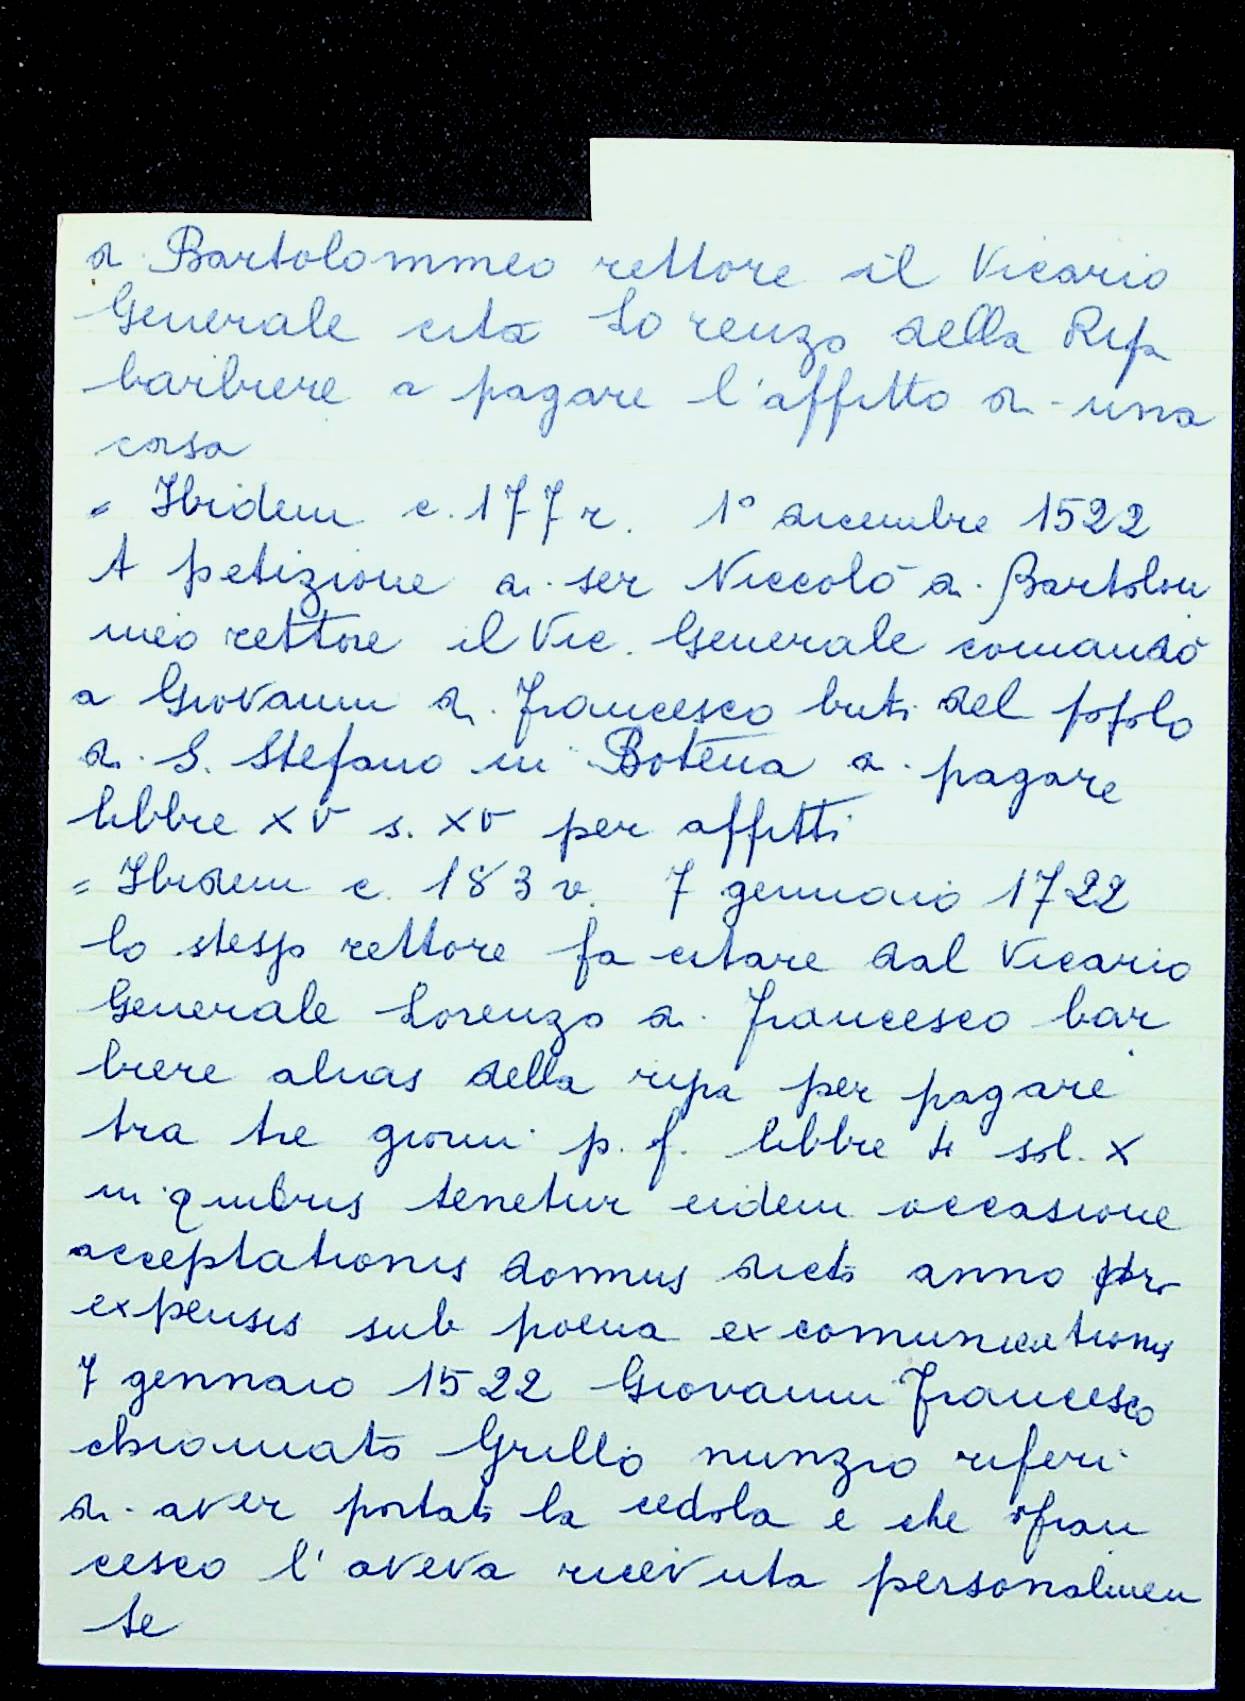 di Bartolommeo rettore il Vicario
Generale cita Lorenzo della Ripa
barbiere a pagare l'affitto di una
casa
= Ibidem c. 177 r. 1° dicembre 1522
A petizione di ser Niccolò di Bartolom
meo rettore il Vic. Generale comandò
a Giovanni di Francesco buti del popolo
di S. Stefano in Botena a pagare
libbre XV s. XV per affitti
= Ibidem c. 183 v. 7 gennaio 1722
lo stesso rettore fa citare dal Vicario
Generale Lorenzo di Francesco bar
biere alias della ripa per pagare
tra tre giorni p. f. libbre 4 sol. X
in quibus tenetur eidem occasione
acceptationis domus dicto anno
expensis sub poena excomunicationis
7 gennaio 1522 Giovanni Francesco
chiamato Grillo nunzio riferì
di aver portato la cedola e che Fran
cesco l'aveva ricevuta personalmen
te